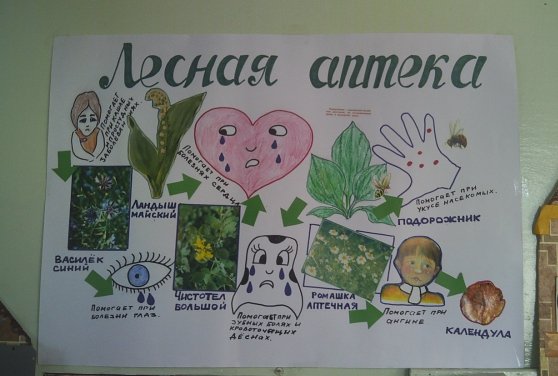 Лесная аптека
Помогает
при кашле
и простудных
заболеваниях.
Ландыш
майский
Помогает при
болезнях сердца
Помогает при
укусе насекомых.
Подорожник
Василёк
синий
Помогает при
болезни глаз.
Чистотел
большой
Помогает при
зубных болях и
кровоточащих
деснах.
Ромашка
аптечная
Помогает при
ангине
Календула